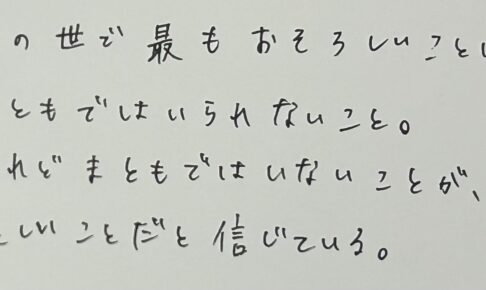 の世で最もおそろしいことし
ともではいられないこと。
れどまともではいないことが、
しいことだと信じている。